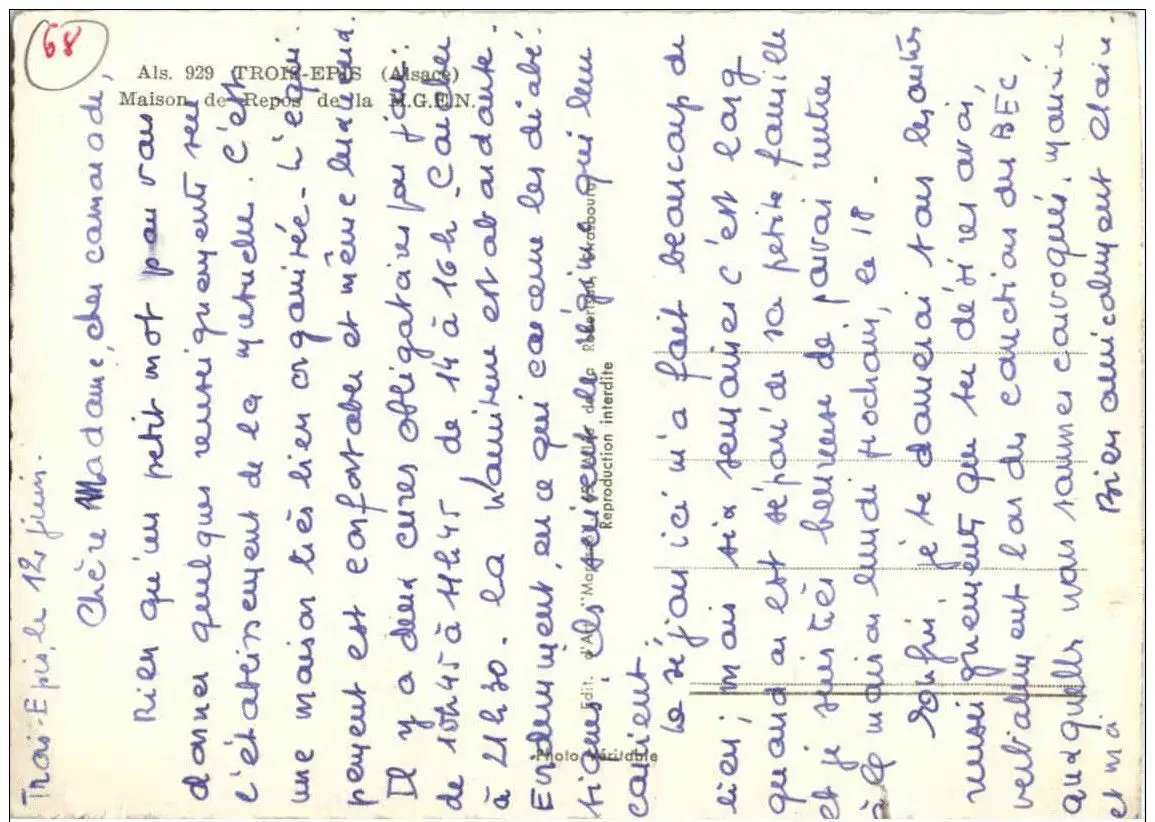 68
Als. 929 TROIS-EPIS (Alsace)
Maison de Repos de la M.G.E.N.
Trois-Epis, le 12 juin.
Chère Madame, cher camarade,
Rien qu'un petit mot pour vous
donner quelques renseignements sur
l'établissement de la mutuelle. C'est
une maison très bien organisée - L'équi
pement est confortable et même luxueux.
Il y a deux cures obligatoires par jour :
de 10h45 à 11h45 de 14 à 16h - Coucher
à 21h30. La nourriture est abondante -
Evidemment, en ce qui concerne les diabé-
tiques, ils suivent le régime qui leur
convient
Le séjour ici m'a fait beaucoup de
bien ; mais six semaines c'est long
quand on est séparé de sa petite famille
et je suis très heureuse de pouvoir
à la maison lundi prochain, le 18 -
Enfin je te donnerai tous les autres
renseignements que tu désires avoir,
verbalement lors des du BEC
auxquelles nous sommes convoqués, mari
et moi
Bien amicalement Claire
Edit. d'Art
Reproduction interdite
Photo véritable